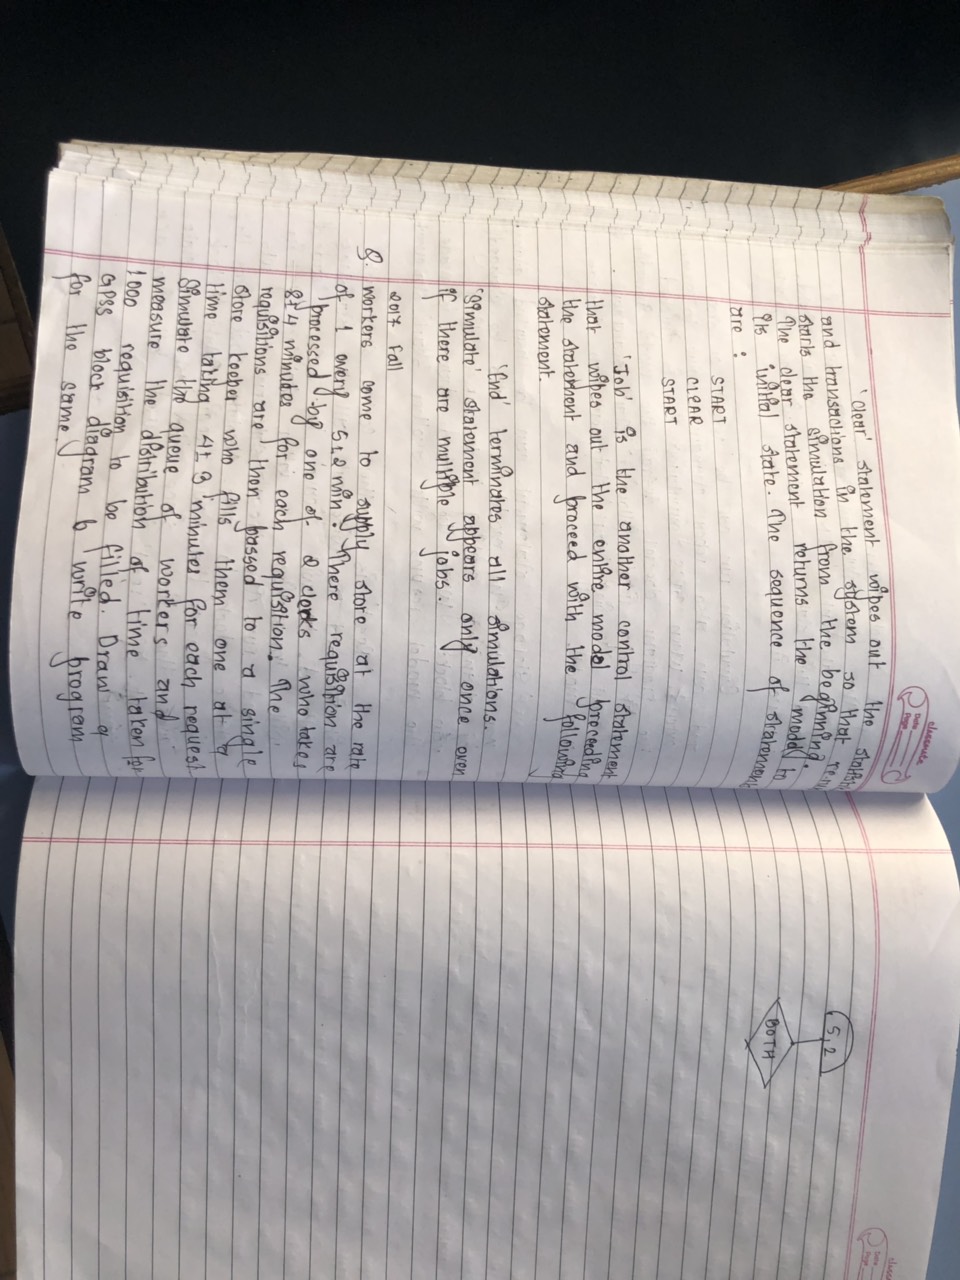 classmate
Date
Page
'Clear' statement wipes out the statistics
and transactions in the system so that
starts the simulation from the beginning.
The clear statement returns the model to
its initial state. The sequence of statement
are :
START
CLEAR
START
'Job' is the another control statement
that wipes out the entire model preceeding
the statement and proceed with the following
statement.
'End' terminates all simulations.
'Simulate' statement appears only once even
if there are multiple jobs.
2017 Fall
Q. Workers come to supply store at the rate
of 1 every 5±2 min. There requisition are
processed by one of 2 clerks who takes
8±4 minutes for each requisition. The
requisitions are then passed to a single
store keeper who fills them one at a
time taking 4±3 minutes for each request.
Simulate the queue of workers and
measure the distribution of time taken for
1000 requisition to be filled. Draw a
GPSS block diagram & write program
for the same.
5,2
BOTH
classmate
Date
Page